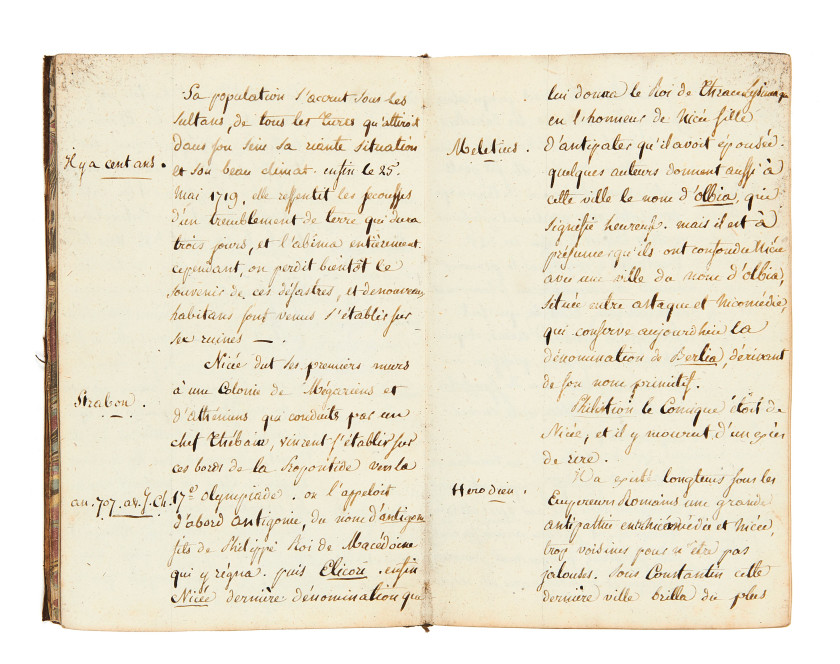 Sa population s'accrut sous les
sultans, de tous les Turcs qu'attiroit
dans son sein sa riante situation
Il y a cent ans.
et son beau climat. enfin le 25.
mai 1719, elle ressentit les secousses
d'un tremblement de terre qui dura
trois jours, et l'abima entièrement.
cependant, on perdit bientôt le
souvenir de ces désastres, et de nouveaux
habitans sont venus s'établir sur
ses ruines —.
Nicée dut ses premiers murs
à une Colonie de Mégariens et
Strabon.
d'athéniens qui conduits par un
chef Thébain, vinrent s'établir sur
ces bords de la Propontide vers la
an. 707. av. J. Ch.
17e olympiade. on l'appeloit
d'abord antigonie, du nom d'antigone
fils de Philippe Roi de Macédoine
qui y régna. puis Elicori. enfin
Nicée dernière dénomination que
lui donna le Roi de Thrace Lysimaque
en l'honneur de Nicée fille
Meletius.
d'antipater qu'il avoit épousée.
quelques auteurs donnent aussi à
cette ville le nom d'olbia, qui
signifie heureuse. mais il est à
présumer qu'ils ont confondu Nicée
avec une ville du nom d'Olbia,
située entre astaque et Nicomédie,
qui conserve aujourdhui la
dénomination de Berlia, dérivant
de son nom primitif.
Philistion le Comique étoit de
Nicée, et il y mourut d'un excès
de rire.
Hérodien.
Il a existé longtems sous les
Empereurs Romains une grande
antipathie entre Nicomédie et Nicée,
trop voisines pour n'être pas
jalouses. sous Constantin cette
dernière ville brilla du plus